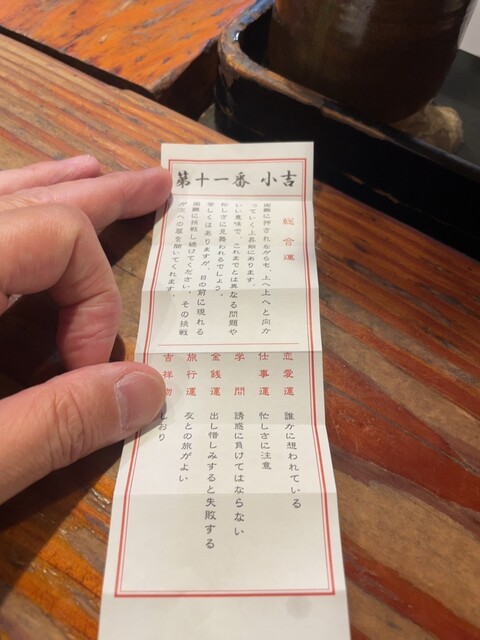 第十一番 小吉
総合運
困難に押されながらも、上へ上へと向か
っていく上昇期にあります。
いい意味で、これまでとは異なる問題や
忙しさに見舞われるでしょう。
苦しくはありますが、目の前に現れる
困難に挑戦し続けてください。その挑戦
が次への扉を開いてくれます。
恋愛運 誰かに想われている
仕事運 忙しさに注意
学問 誘惑に負けてはならない
金銭運 出し惜しみすると失敗する
旅行運 友との旅がよい
吉祥物 しおり